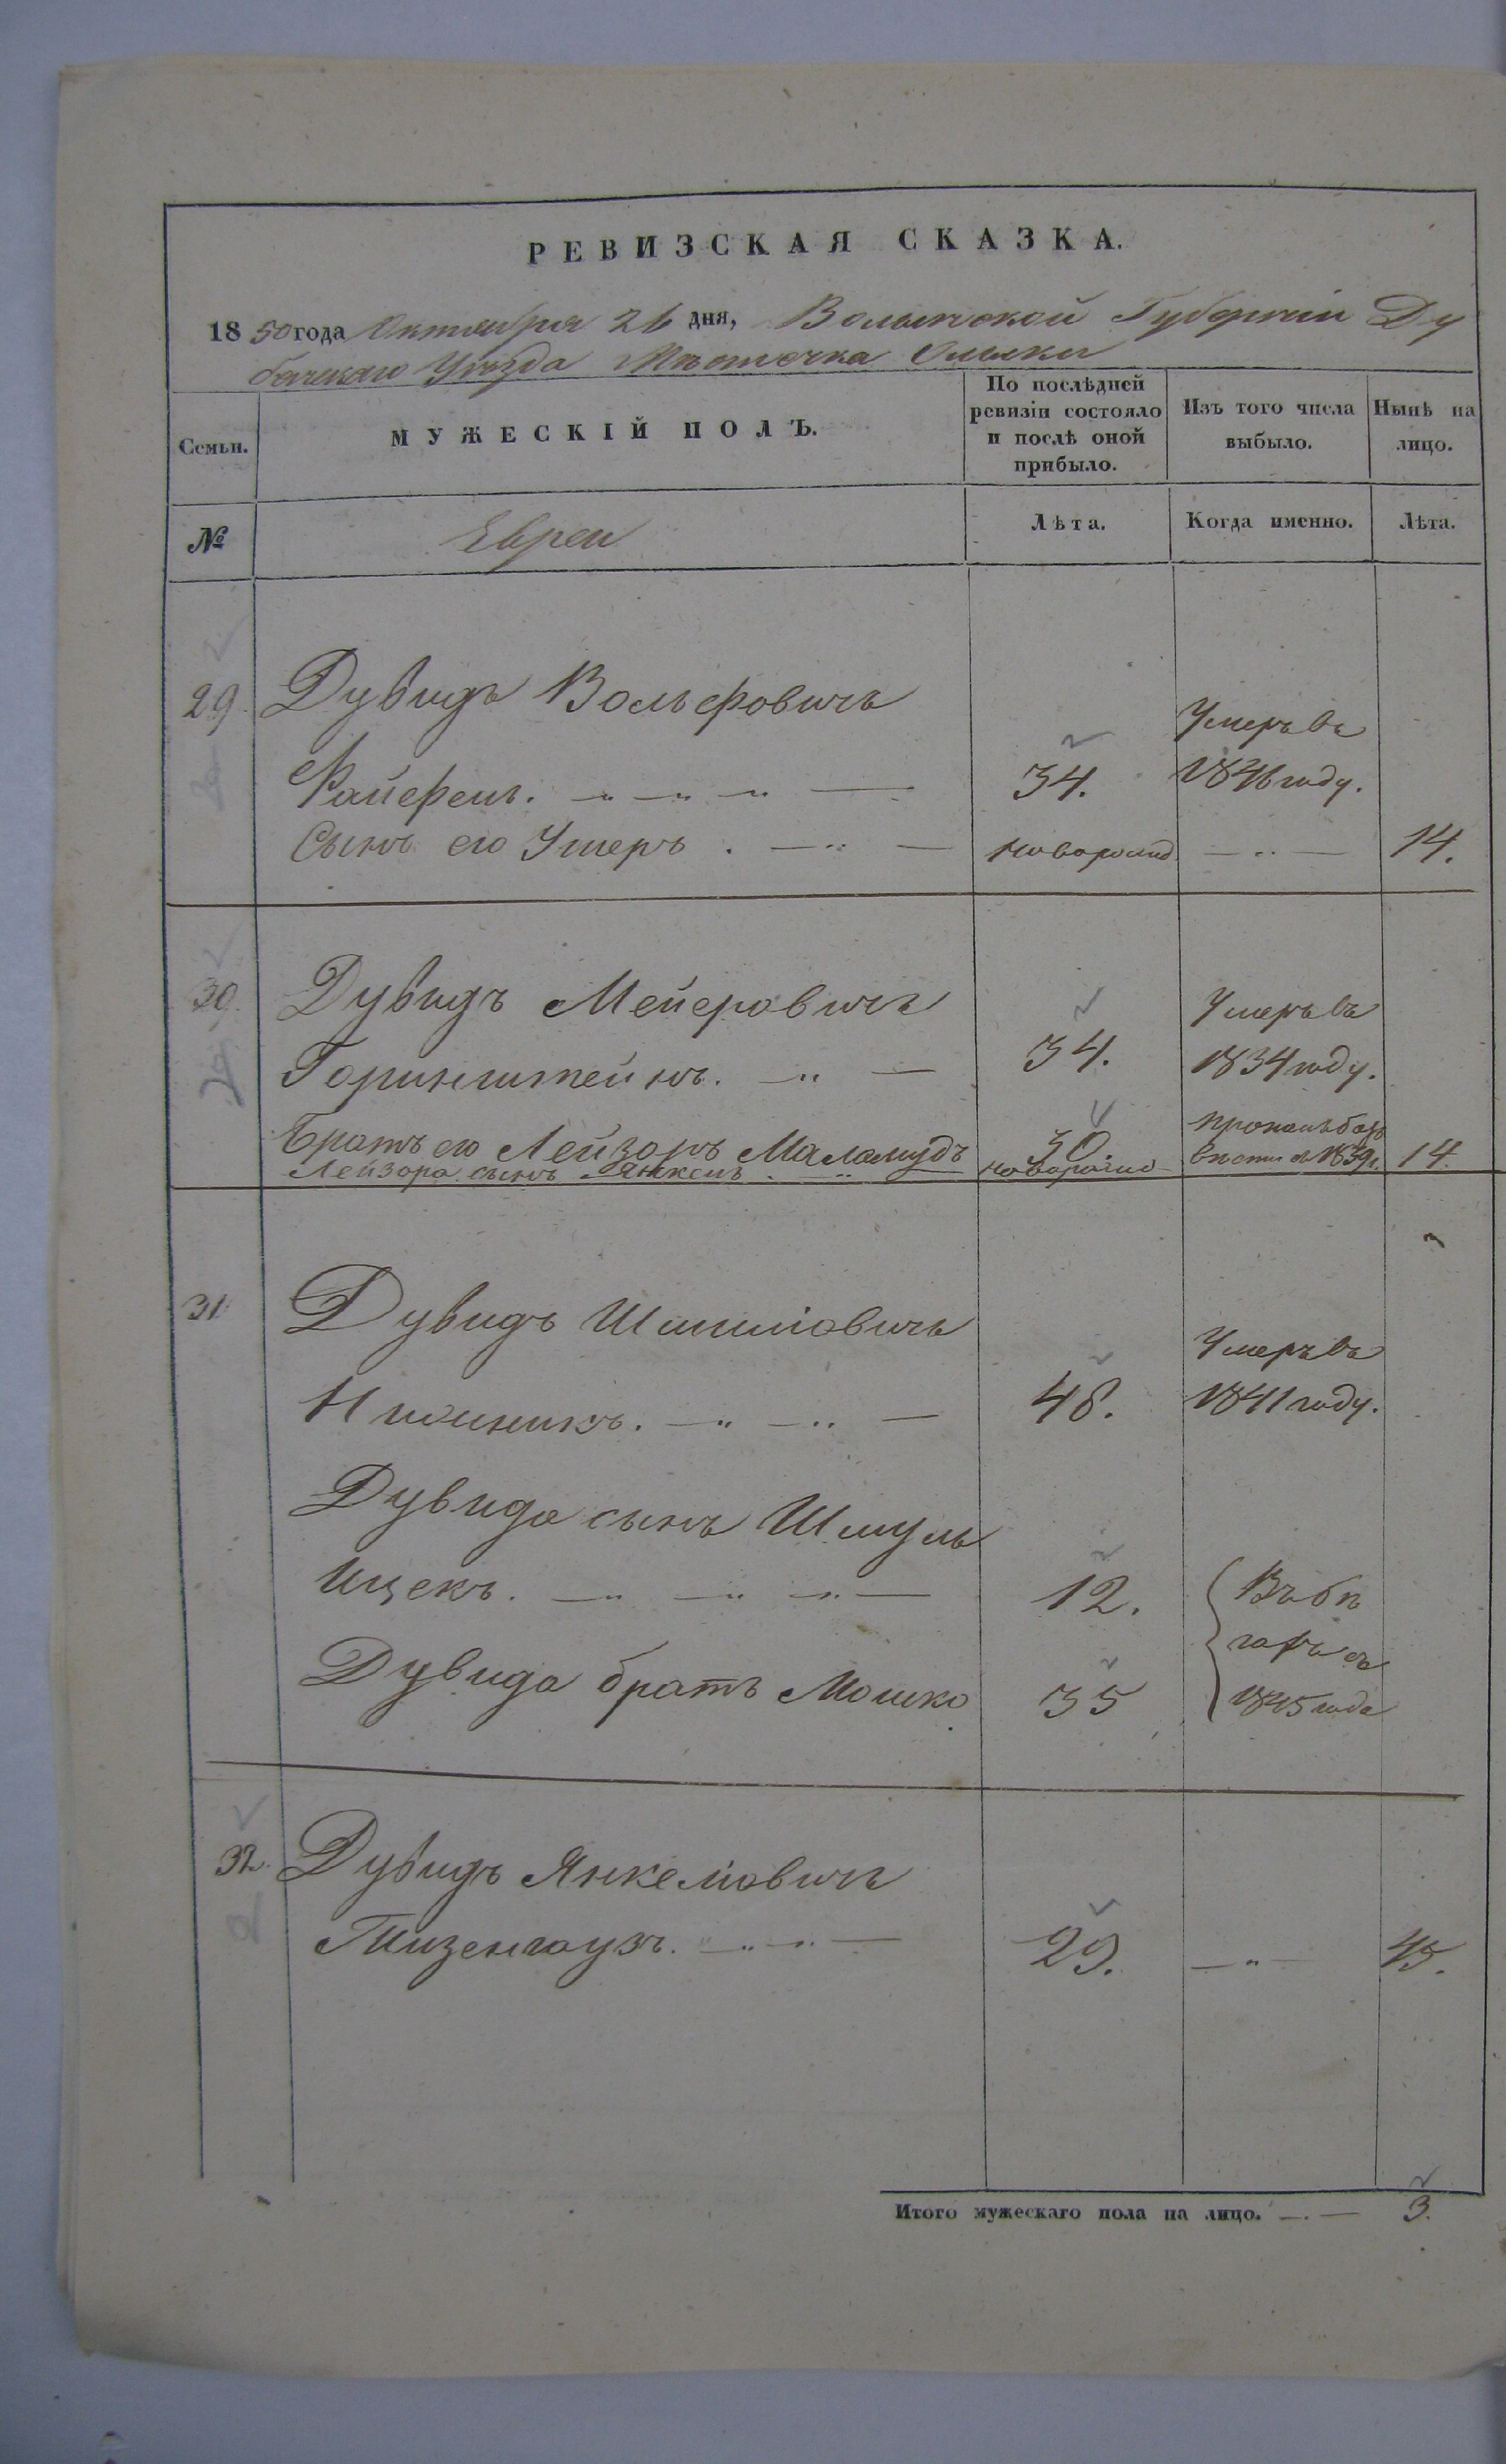 РЕВИЗСКАЯ СКАЗКА.
1850 года Октября 26 дня, Волынской Губерніи Ду
бенскаго Уѣзда Мѣстечка Олыки
Семьи.
МУЖЕСКІЙ ПОЛЪ.
По послѣдней ревизіи состояло и послѣ оной прибыло.
Изъ того числа выбыло.
Нынѣ на лицо.
№
Евреи
Лѣта.
Когда именно.
Лѣта.
29 Дувидъ Вольфовичъ
Умеръ въ
34. 1846 году.
Сынъ его Ушеръ . — новорожд — 14.
30. Дувидъ Мейеровичъ
Умеръ въ
Горинштейнъ. — 34. 1834 году.
Братъ его Лейзоръ Маламудъ 30
Лейзора сынъ Янкель новорожд 14.
31 Дувидъ
Умеръ въ
48. 1841 году.
Дувида сынъ Шмуль
Ицекъ. — 12. Въ бѣ
гахъ съ
Дувида братъ Мошко 35 1845 года
32. Дувидъ Янкеліовичъ
Тизенгаузъ. — 29. — 45.
Итого мужескаго пола на лицо. — 3.